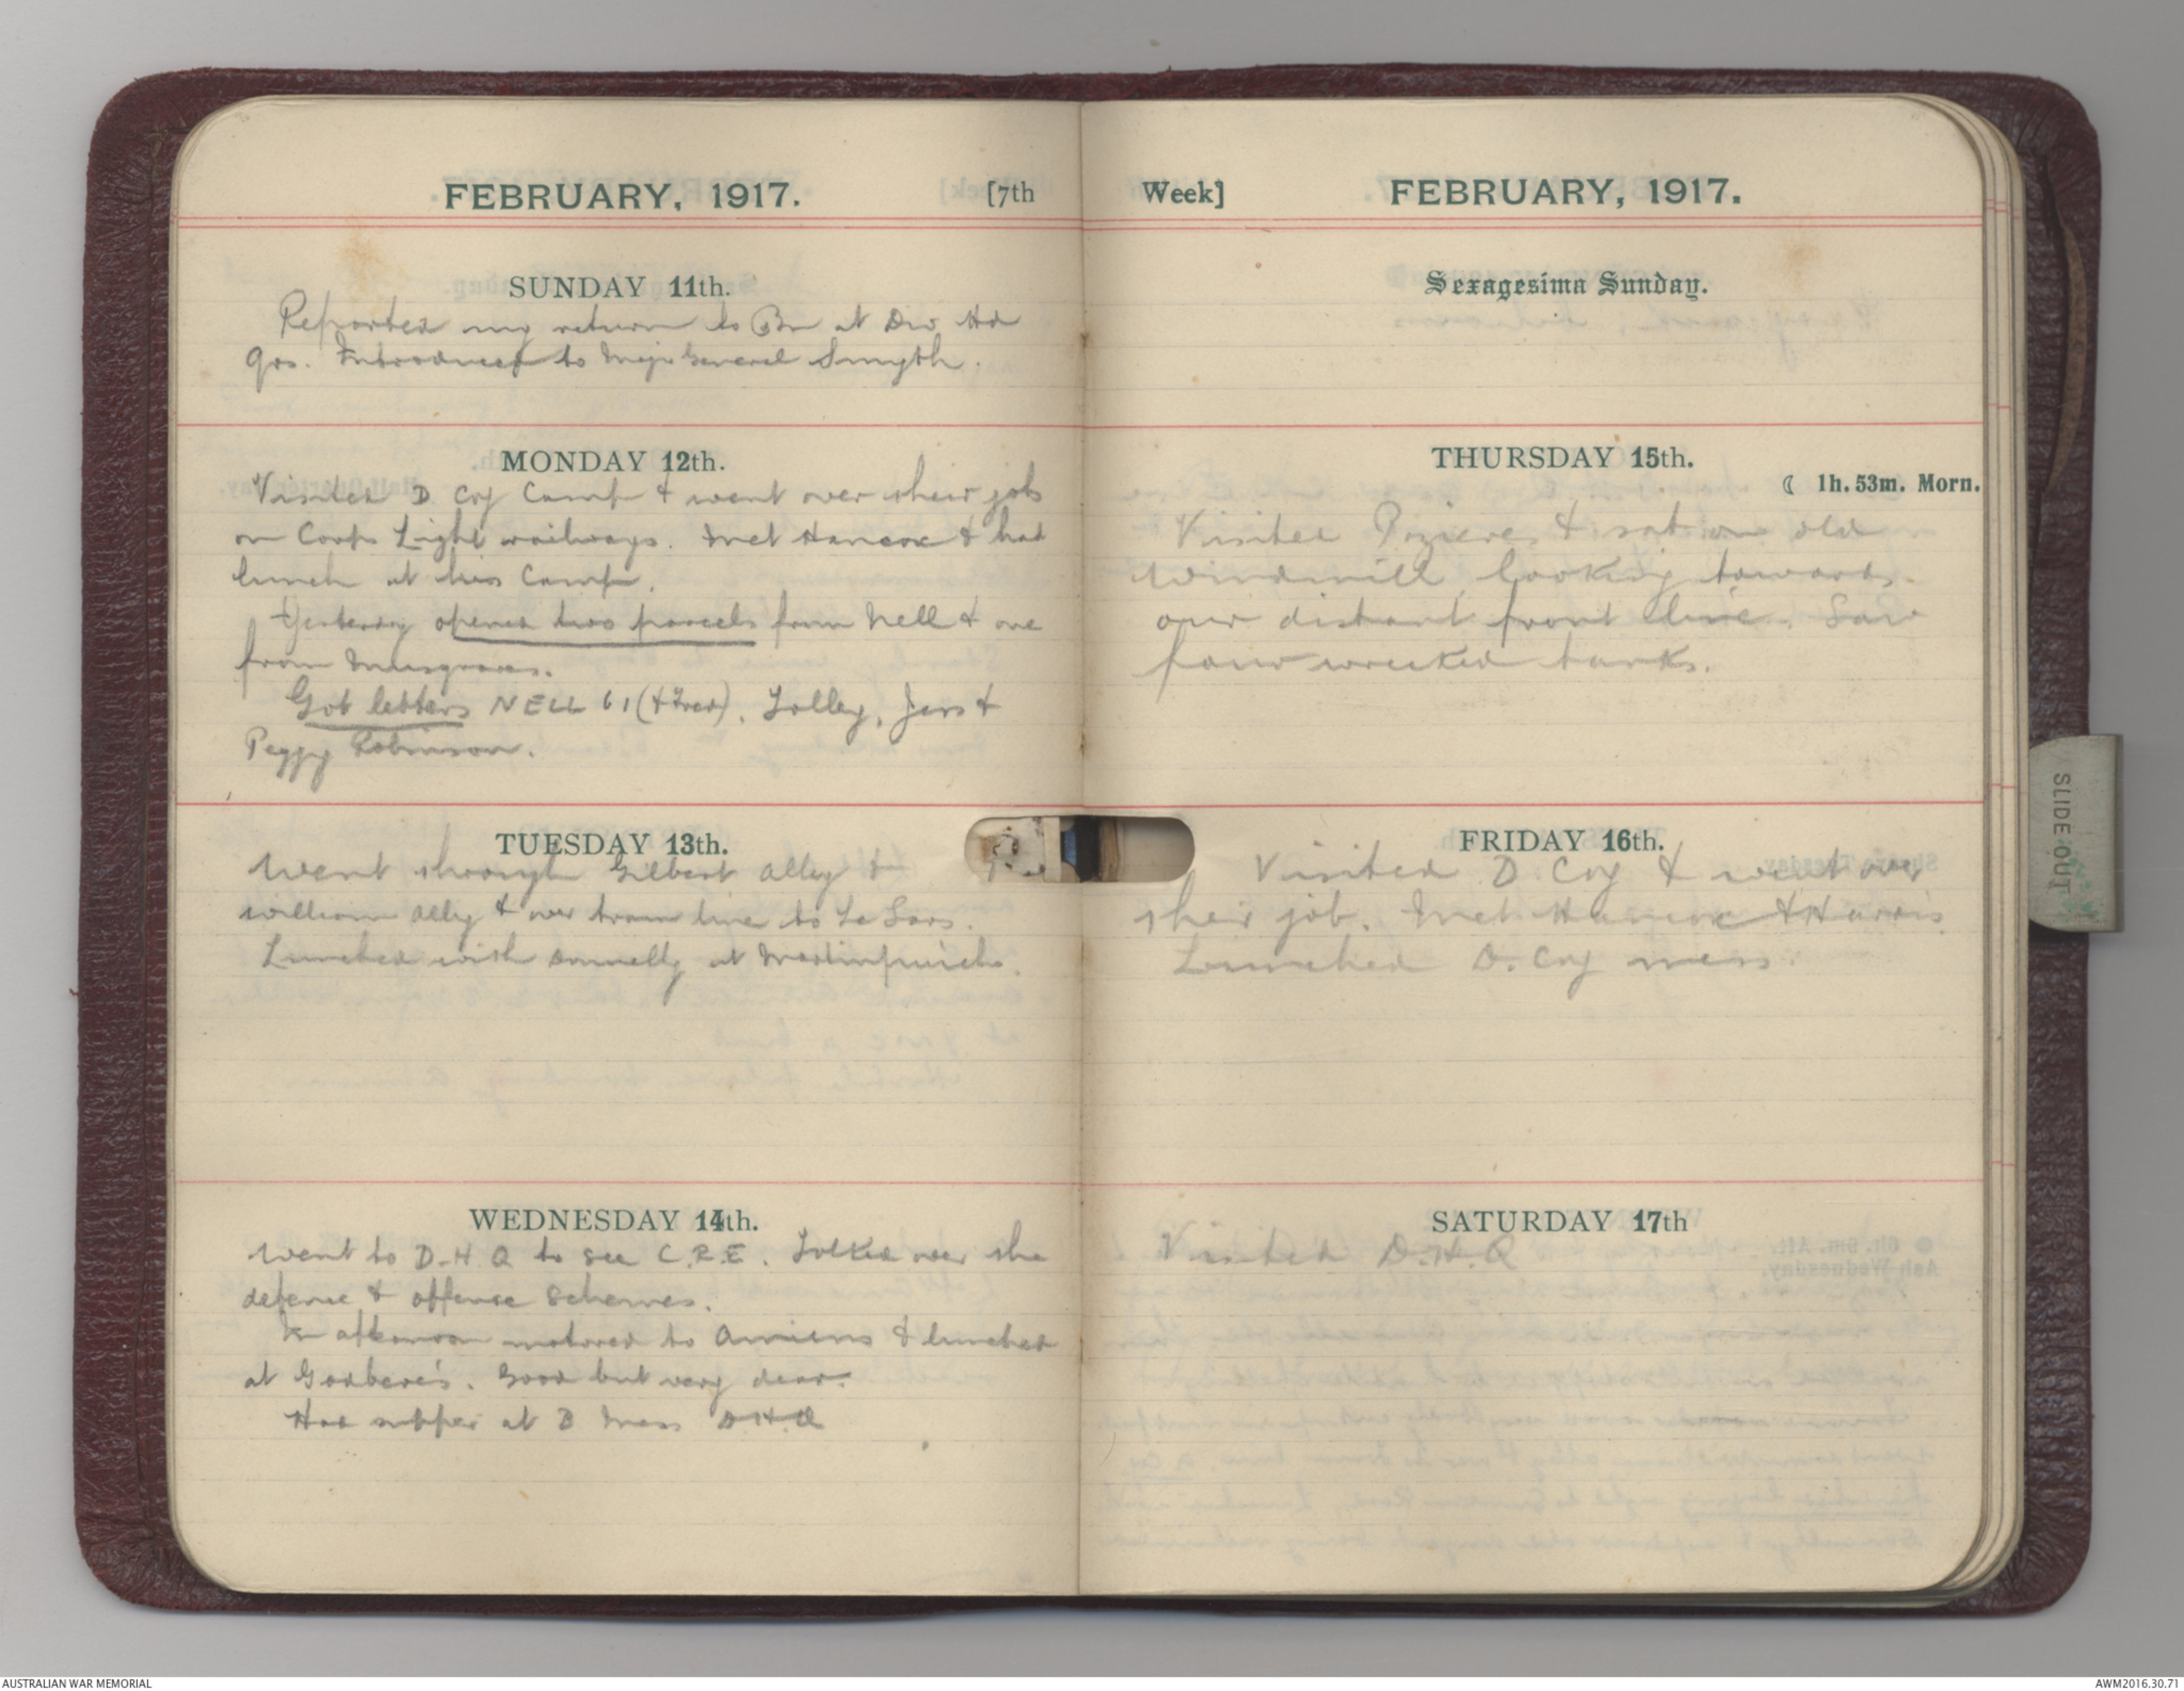 FEBRUARY, 1917. [7th
SUNDAY 11th.
Reported my return to Bn at Div Hd
Qrs. Introduced to Major General Smyth.
MONDAY 12th.
Visited D Coy Camp & went over their job
on Corps Light railways. Met Hancox & had
lunch at his Camp.
Yesterday opened two parcels from Nell & one
from Musgraves.
Got letters NELL 61 (& Fred), Lolley, Jess &
Peggy Robinson.
TUESDAY 13th.
Went through Gilbert Alley &
William Alley & over tram line to Le Sars.
Lunched with Donnelly at Martinpuich.
WEDNESDAY 14th.
Went to D.H.Q to see C.R.E. Talked over the
defence & offence schemes.
In afternoon motored to Amiens & lunched
at Godbere's. Good but very dear.
Had supper at B Mess D.H.Q
Week] FEBRUARY, 1917.
Sexagesima Sunday.
THURSDAY 15th.
☾ 1h. 53m. Morn.
Visited Pozieres & sat on old
windmill looking towards
our distant front line. Saw
four wrecked tanks.
FRIDAY 16th.
Visited D Coy & went over
their job. Met Hancox & Harris
Lunched D. Coy mess.
SATURDAY 17th
Visited D.H.Q
SLIDE OUT
AUSTRALIAN WAR MEMORIAL
AWM2016.30.71